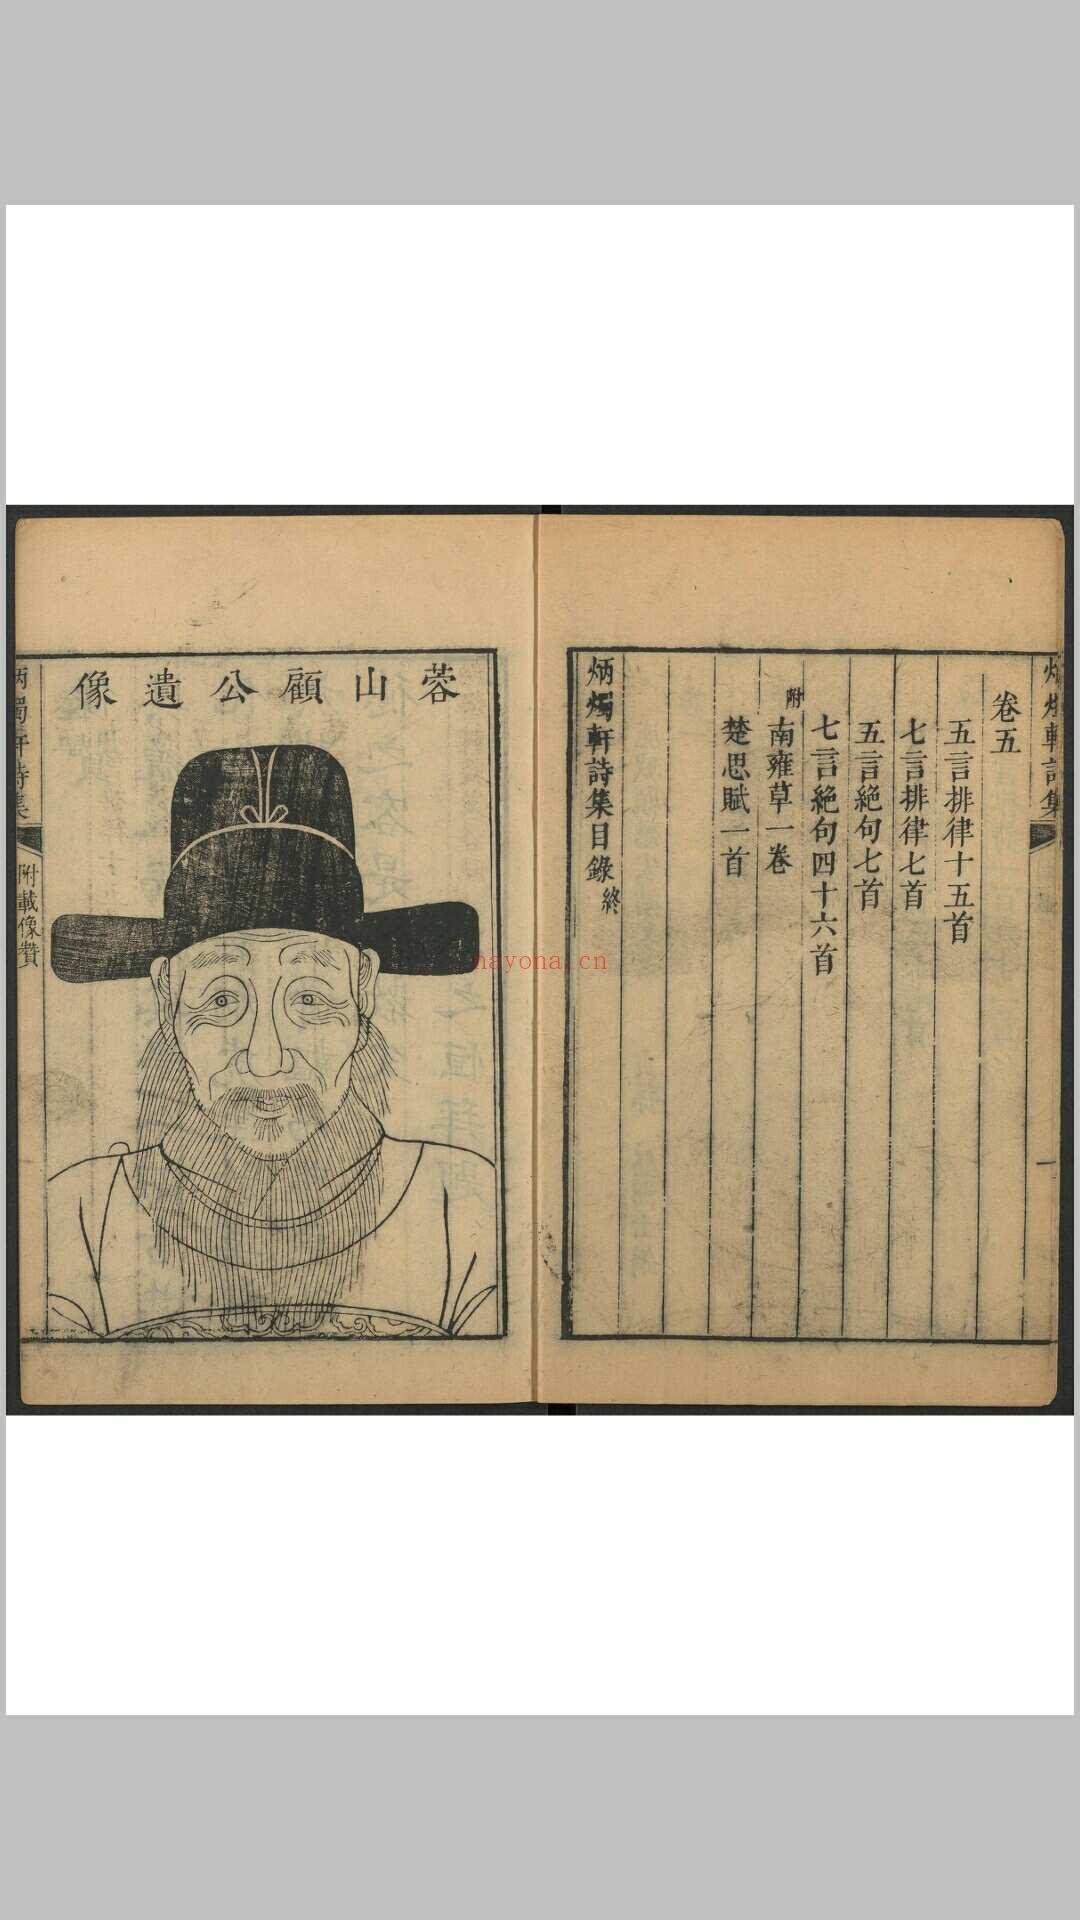 炳燭軒詩集
一
卷五
五言排律十五首
七言排律七首
五言絶句七首
七言絶句四十六首
附
南雍草一卷
楚思賦一首
炳燭軒詩集目錄終
蓉山顧公遺像
炳燭軒詩集
附載像贊
nayona.cn